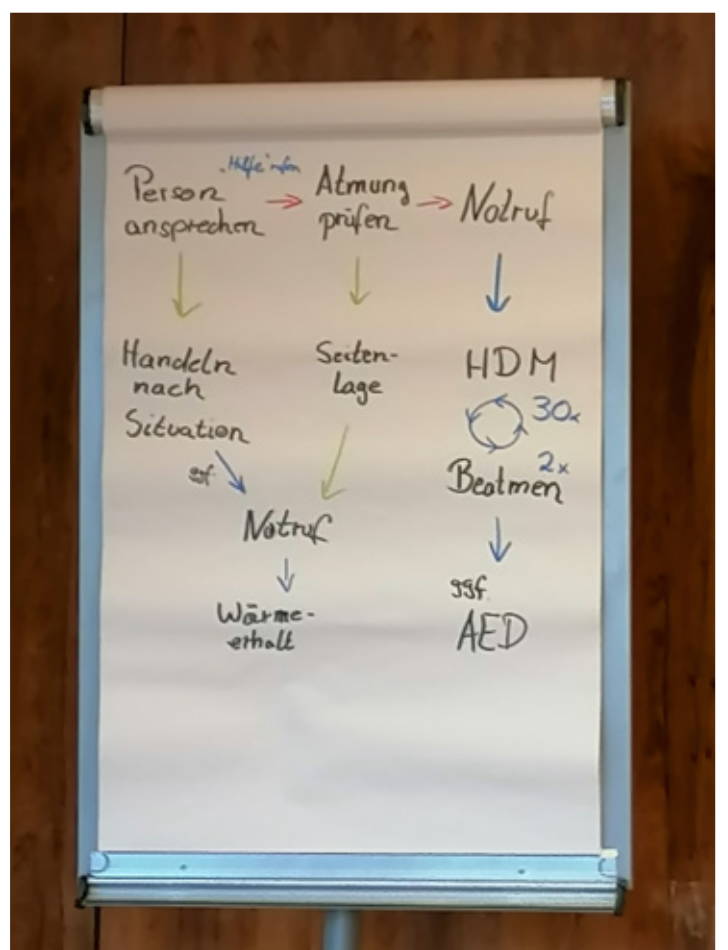 „Hilfe“ rufen
Person
ansprechen
Atmung
prüfen
Notruf
Handeln
nach
Situation
Seiten-
lage
HDM
30x
2x
Beatmen
ggf.
Notruf
Wärme-
erhalt
ggf.
AED